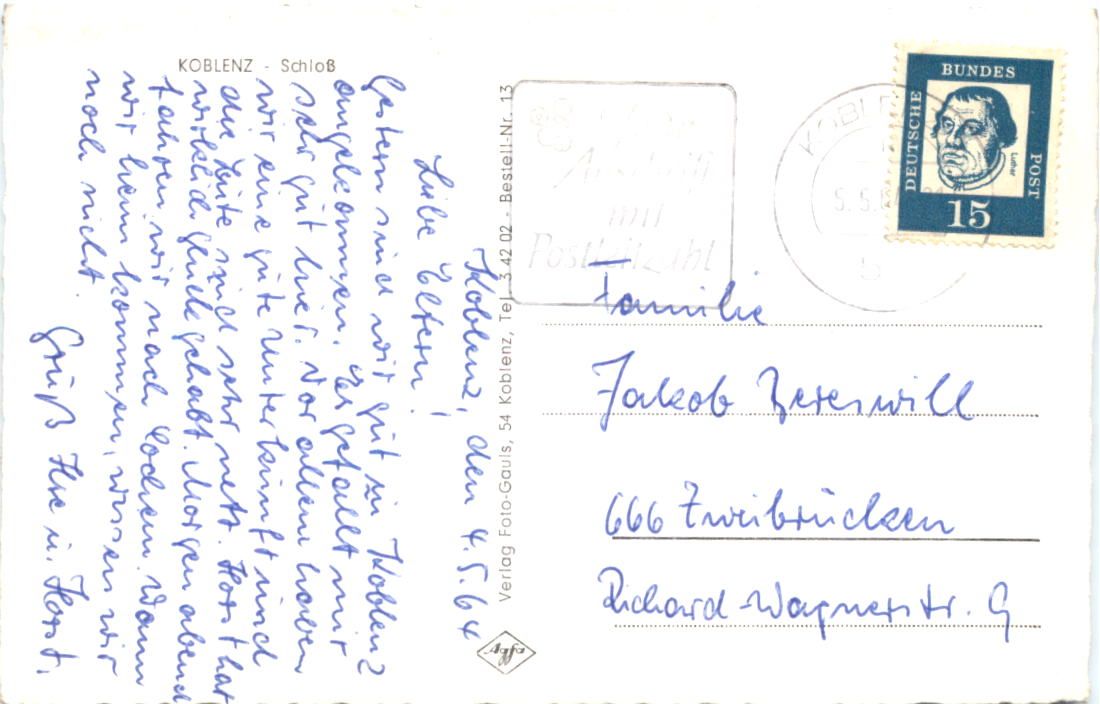 KOBLENZ - Schloß
Koblenz, den 4.5.64
Liebe Eltern!
Gestern sind wir gut in Koblenz
angekommen. Es gefällt mir
sehr gut hier. Vor allem haben
wir eine gute Unterkunft und
die Leute sind sehr nett. Horst hat
wirklich Glück gehabt. Morgen abend
fahren wir nach Cochem. Wann
wir heim kommen, wissen wir
noch nicht.
Grüß u. Horst.
Verlag Foto-Gauls, 54 Koblenz, Tel. 3 42 02 - Bestell-Nr. 13
Agfa
mit
Postleitzahl
KOBLENZ
5.5.
b
DEUTSCHE
BUNDES
POST
Luther
15
Familie
Jakob Bereswill
666 Zweibrücken
Richard-Wagnerstr. 9